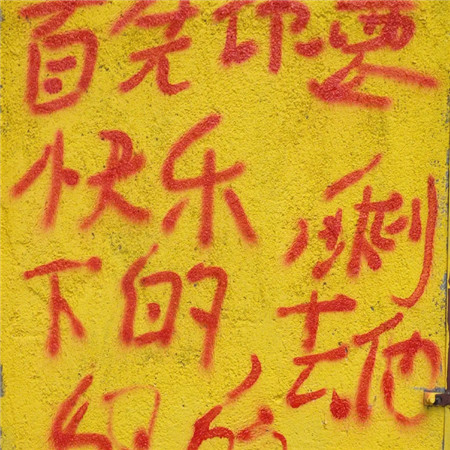 首先要
快乐剩
下的去他